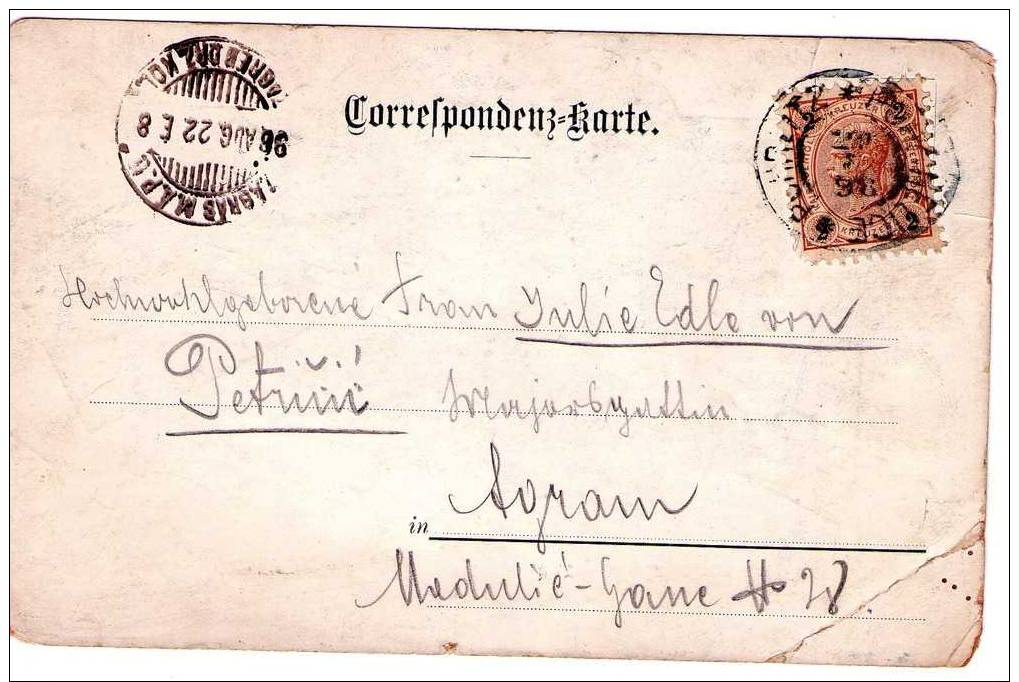 ZAGREB DRŽ. KOL.
96 AUG. 22 E 8
ZÁGRÁB M.Á.P.U.
Correspondenz-Karte.
2 2
KREUZER
96
Hochwohlgeborene Frau Julie Edle von
Petričić Majorsgattin
in Agram
Medulić-Gasse № 28